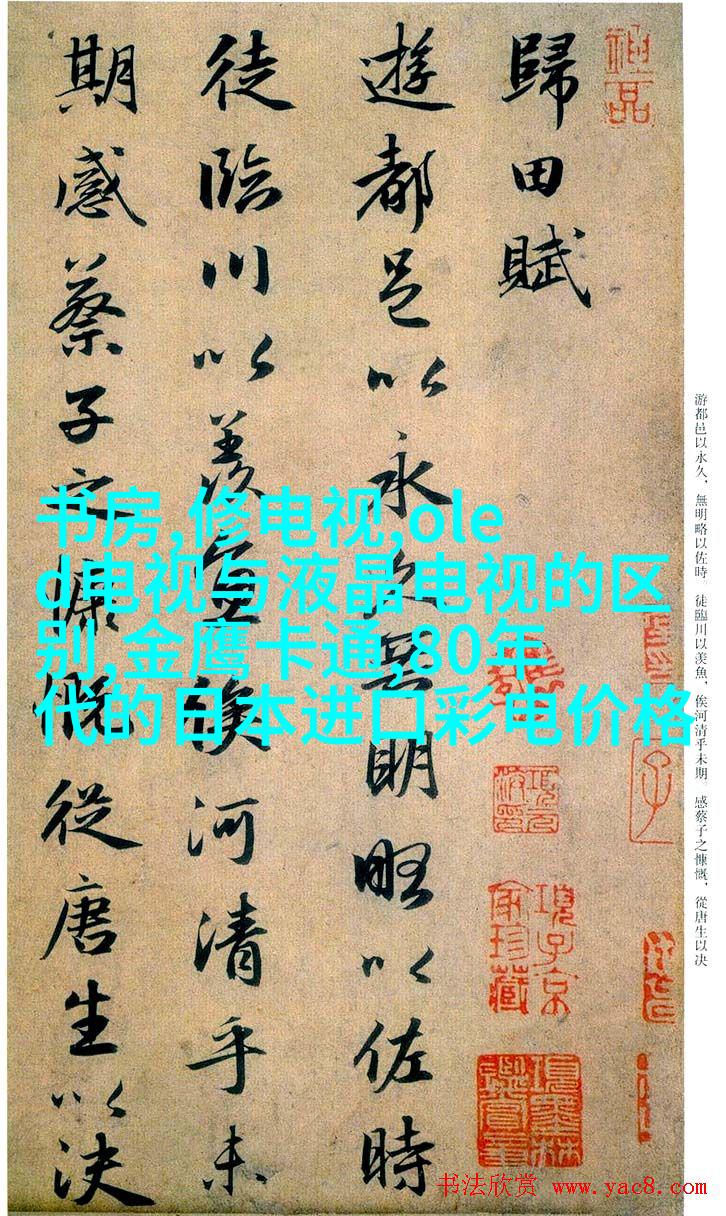 歸田賦
遊都邑以永久無明略以佐時
徒臨川以羨魚俟河清乎未
期感蔡子之慷慨從唐生以決
书房,修电视,ole
d电视与液晶电视的区
别,金鹰卡通,80年
代的日本进口彩电价格
游都邑以永久，無明略以佐時。徒臨川以羨魚，俟河清乎未期。感蔡子之慷慨，從唐生以决
項子京
家珍藏
书法欣赏 www.yac8.com